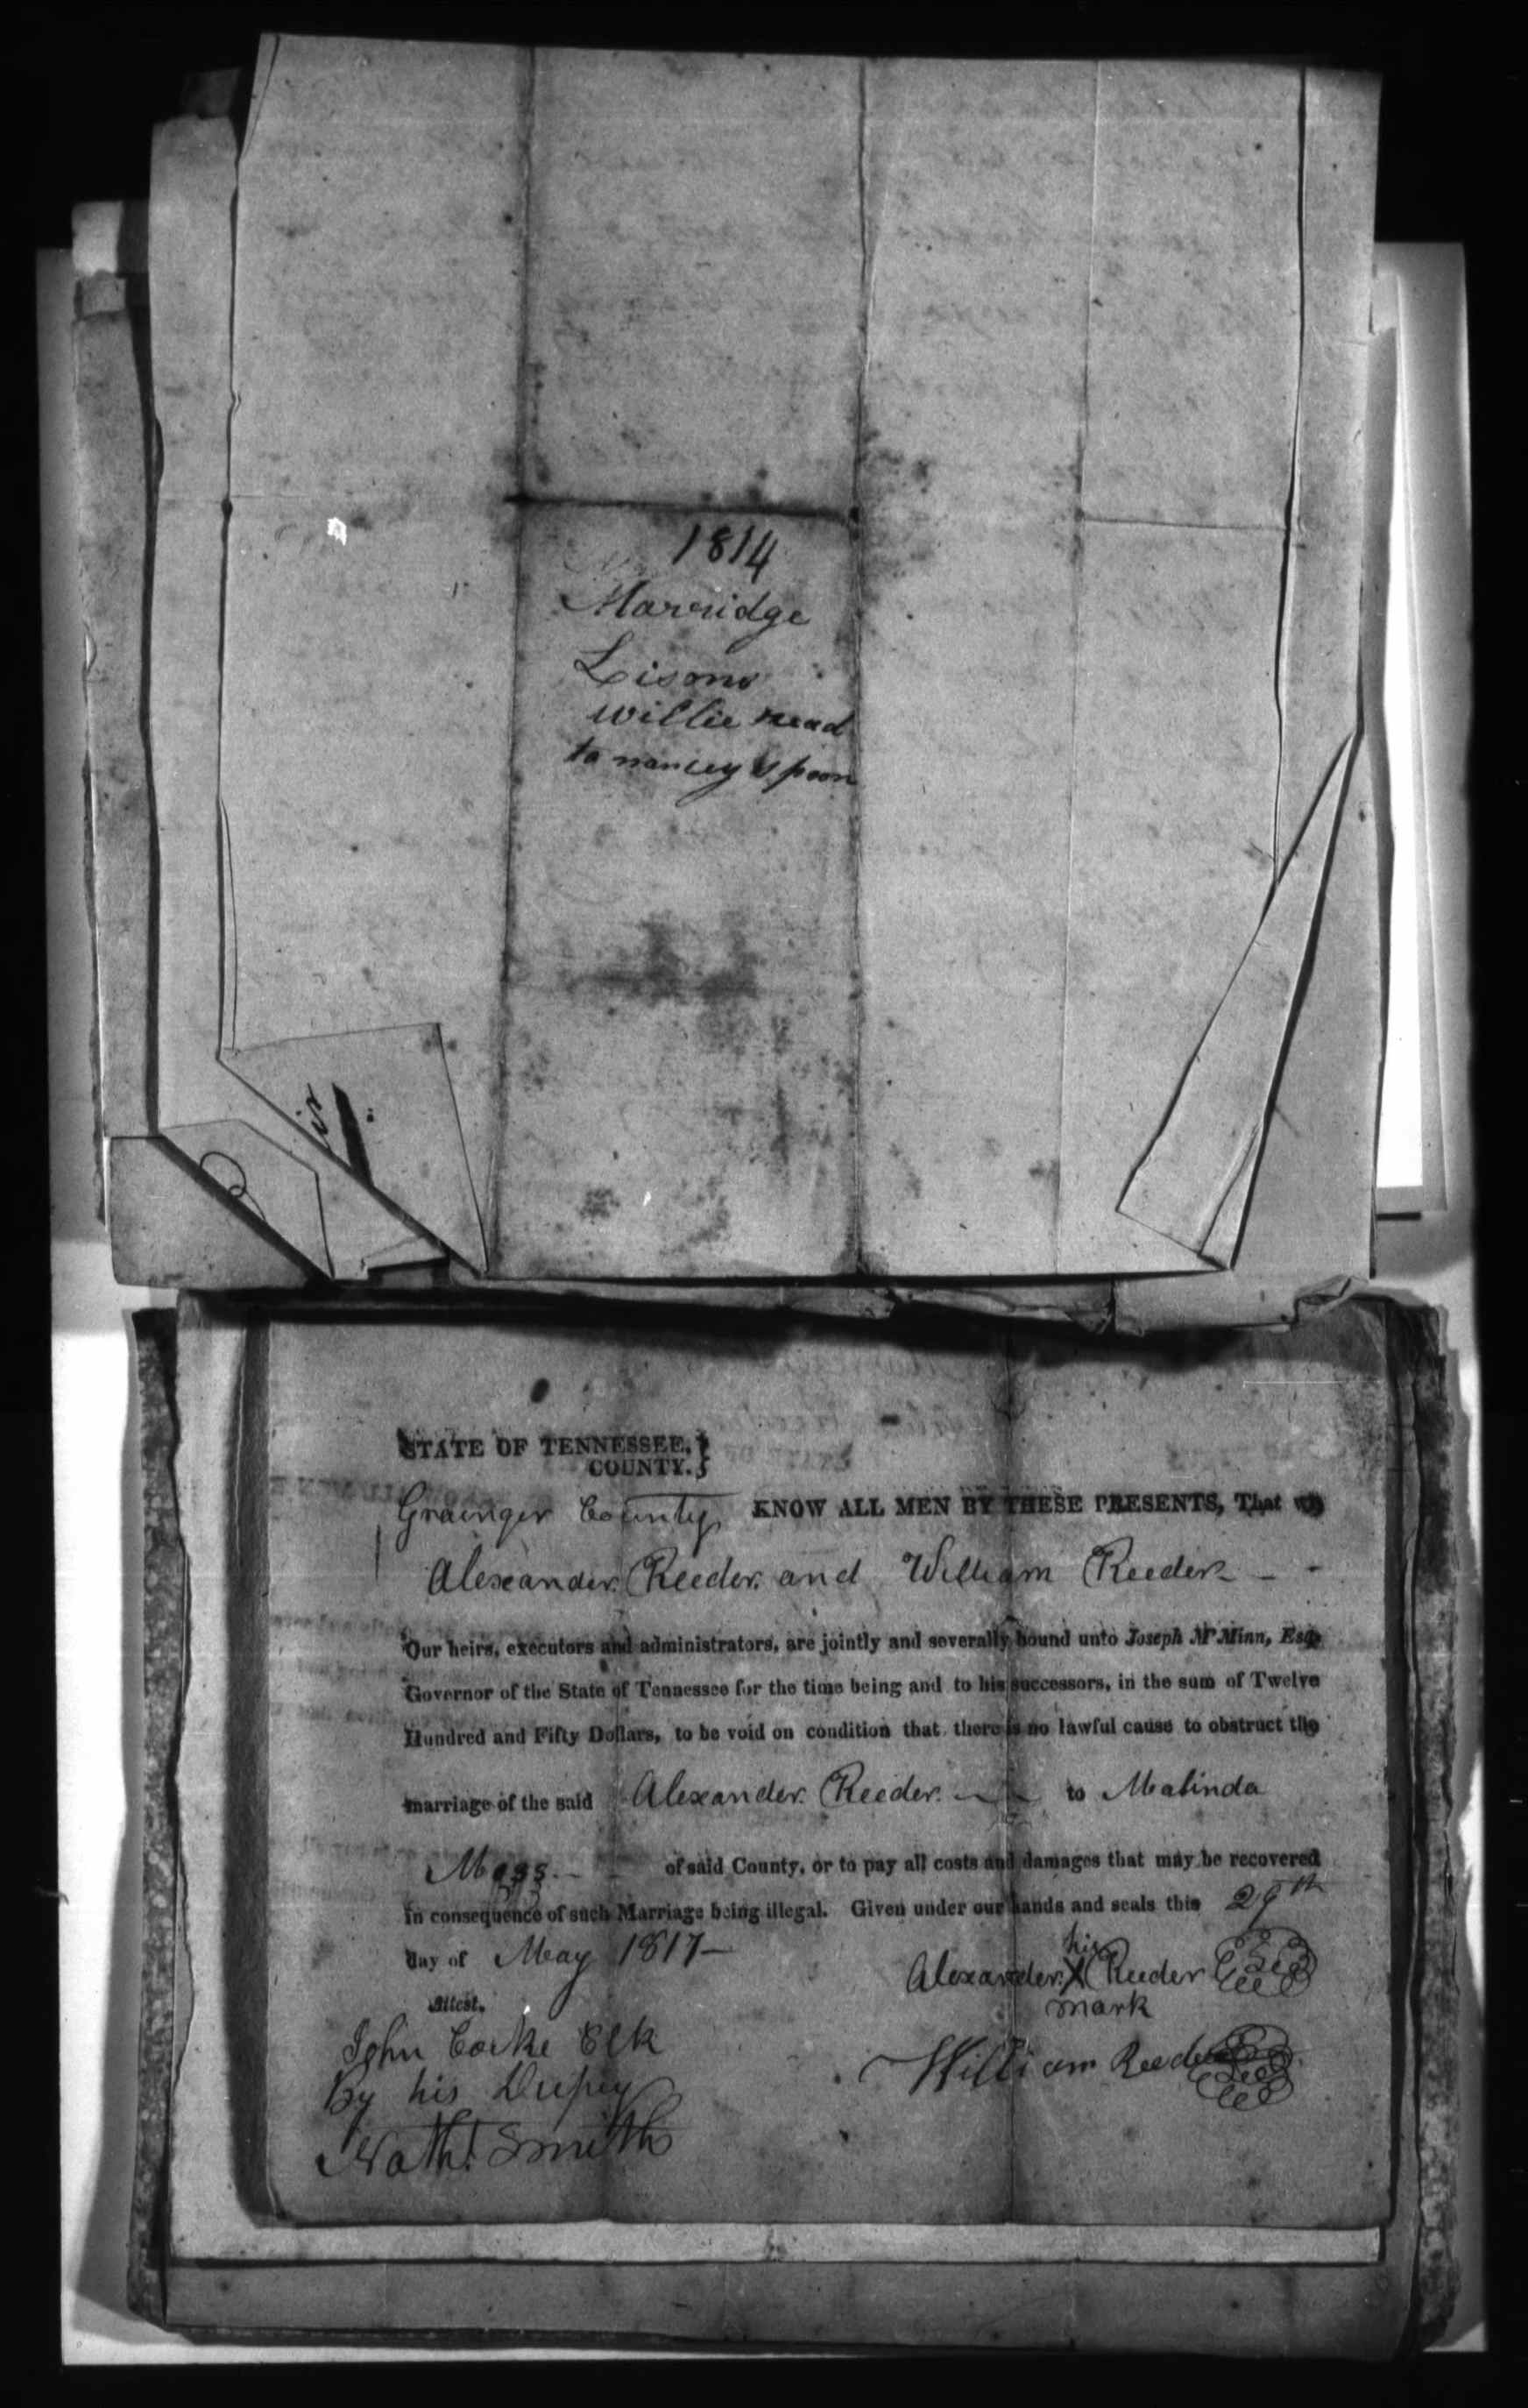 1814
Marridge
Lisons
Willie read
to nancey Spoon
STATE OF TENNESSEE, }
COUNTY. }
Grainger County KNOW ALL MEN BY THESE PRESENTS, That we
Alexander Reeder and William Reeder - -
Our heirs, executors and administrators, are jointly and severally bound unto Joseph M'Minn, Esq
Governor of the State of Tennessee for the time being and to his successors, in the sum of Twelve
Hundred and Fifty Dollars, to be void on condition that there is no lawful cause to obstruct the
marriage of the said Alexander Reeder to Malinda
Moss of said County, or to pay all costs and damages that may be recovered
in consequence of such Marriage being illegal. Given under our hands and seals this 29th
day of May 1817-
his
Alexander X Reeder
mark
Attest.
John Cocke Clk
By his Dupey
Nathl Smith
William Reeder